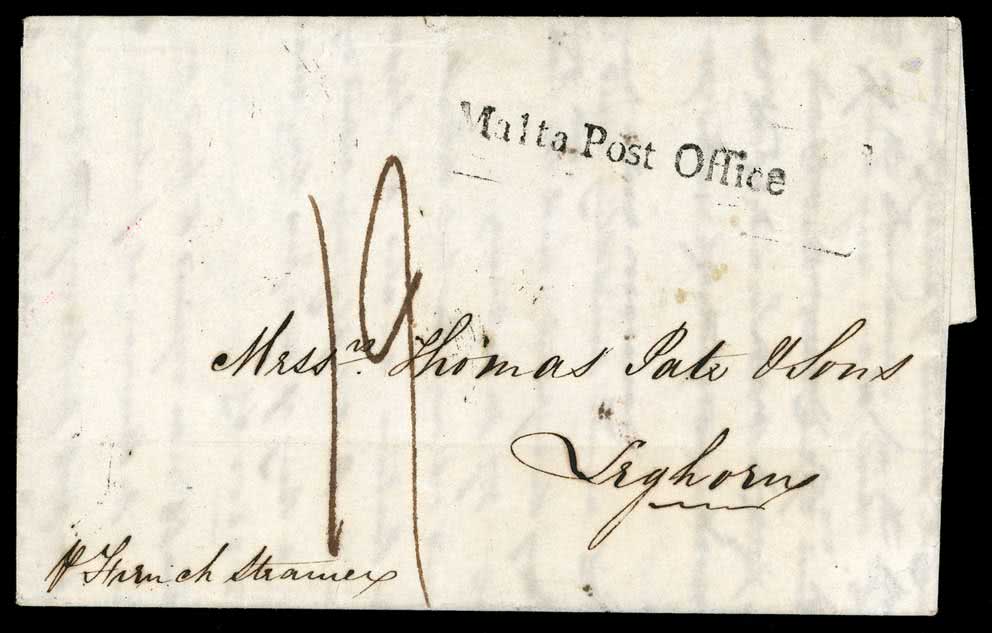 Malta Post Office
19
Messrs. Thomas Pate & Sons
Leghorn
p French Steamer